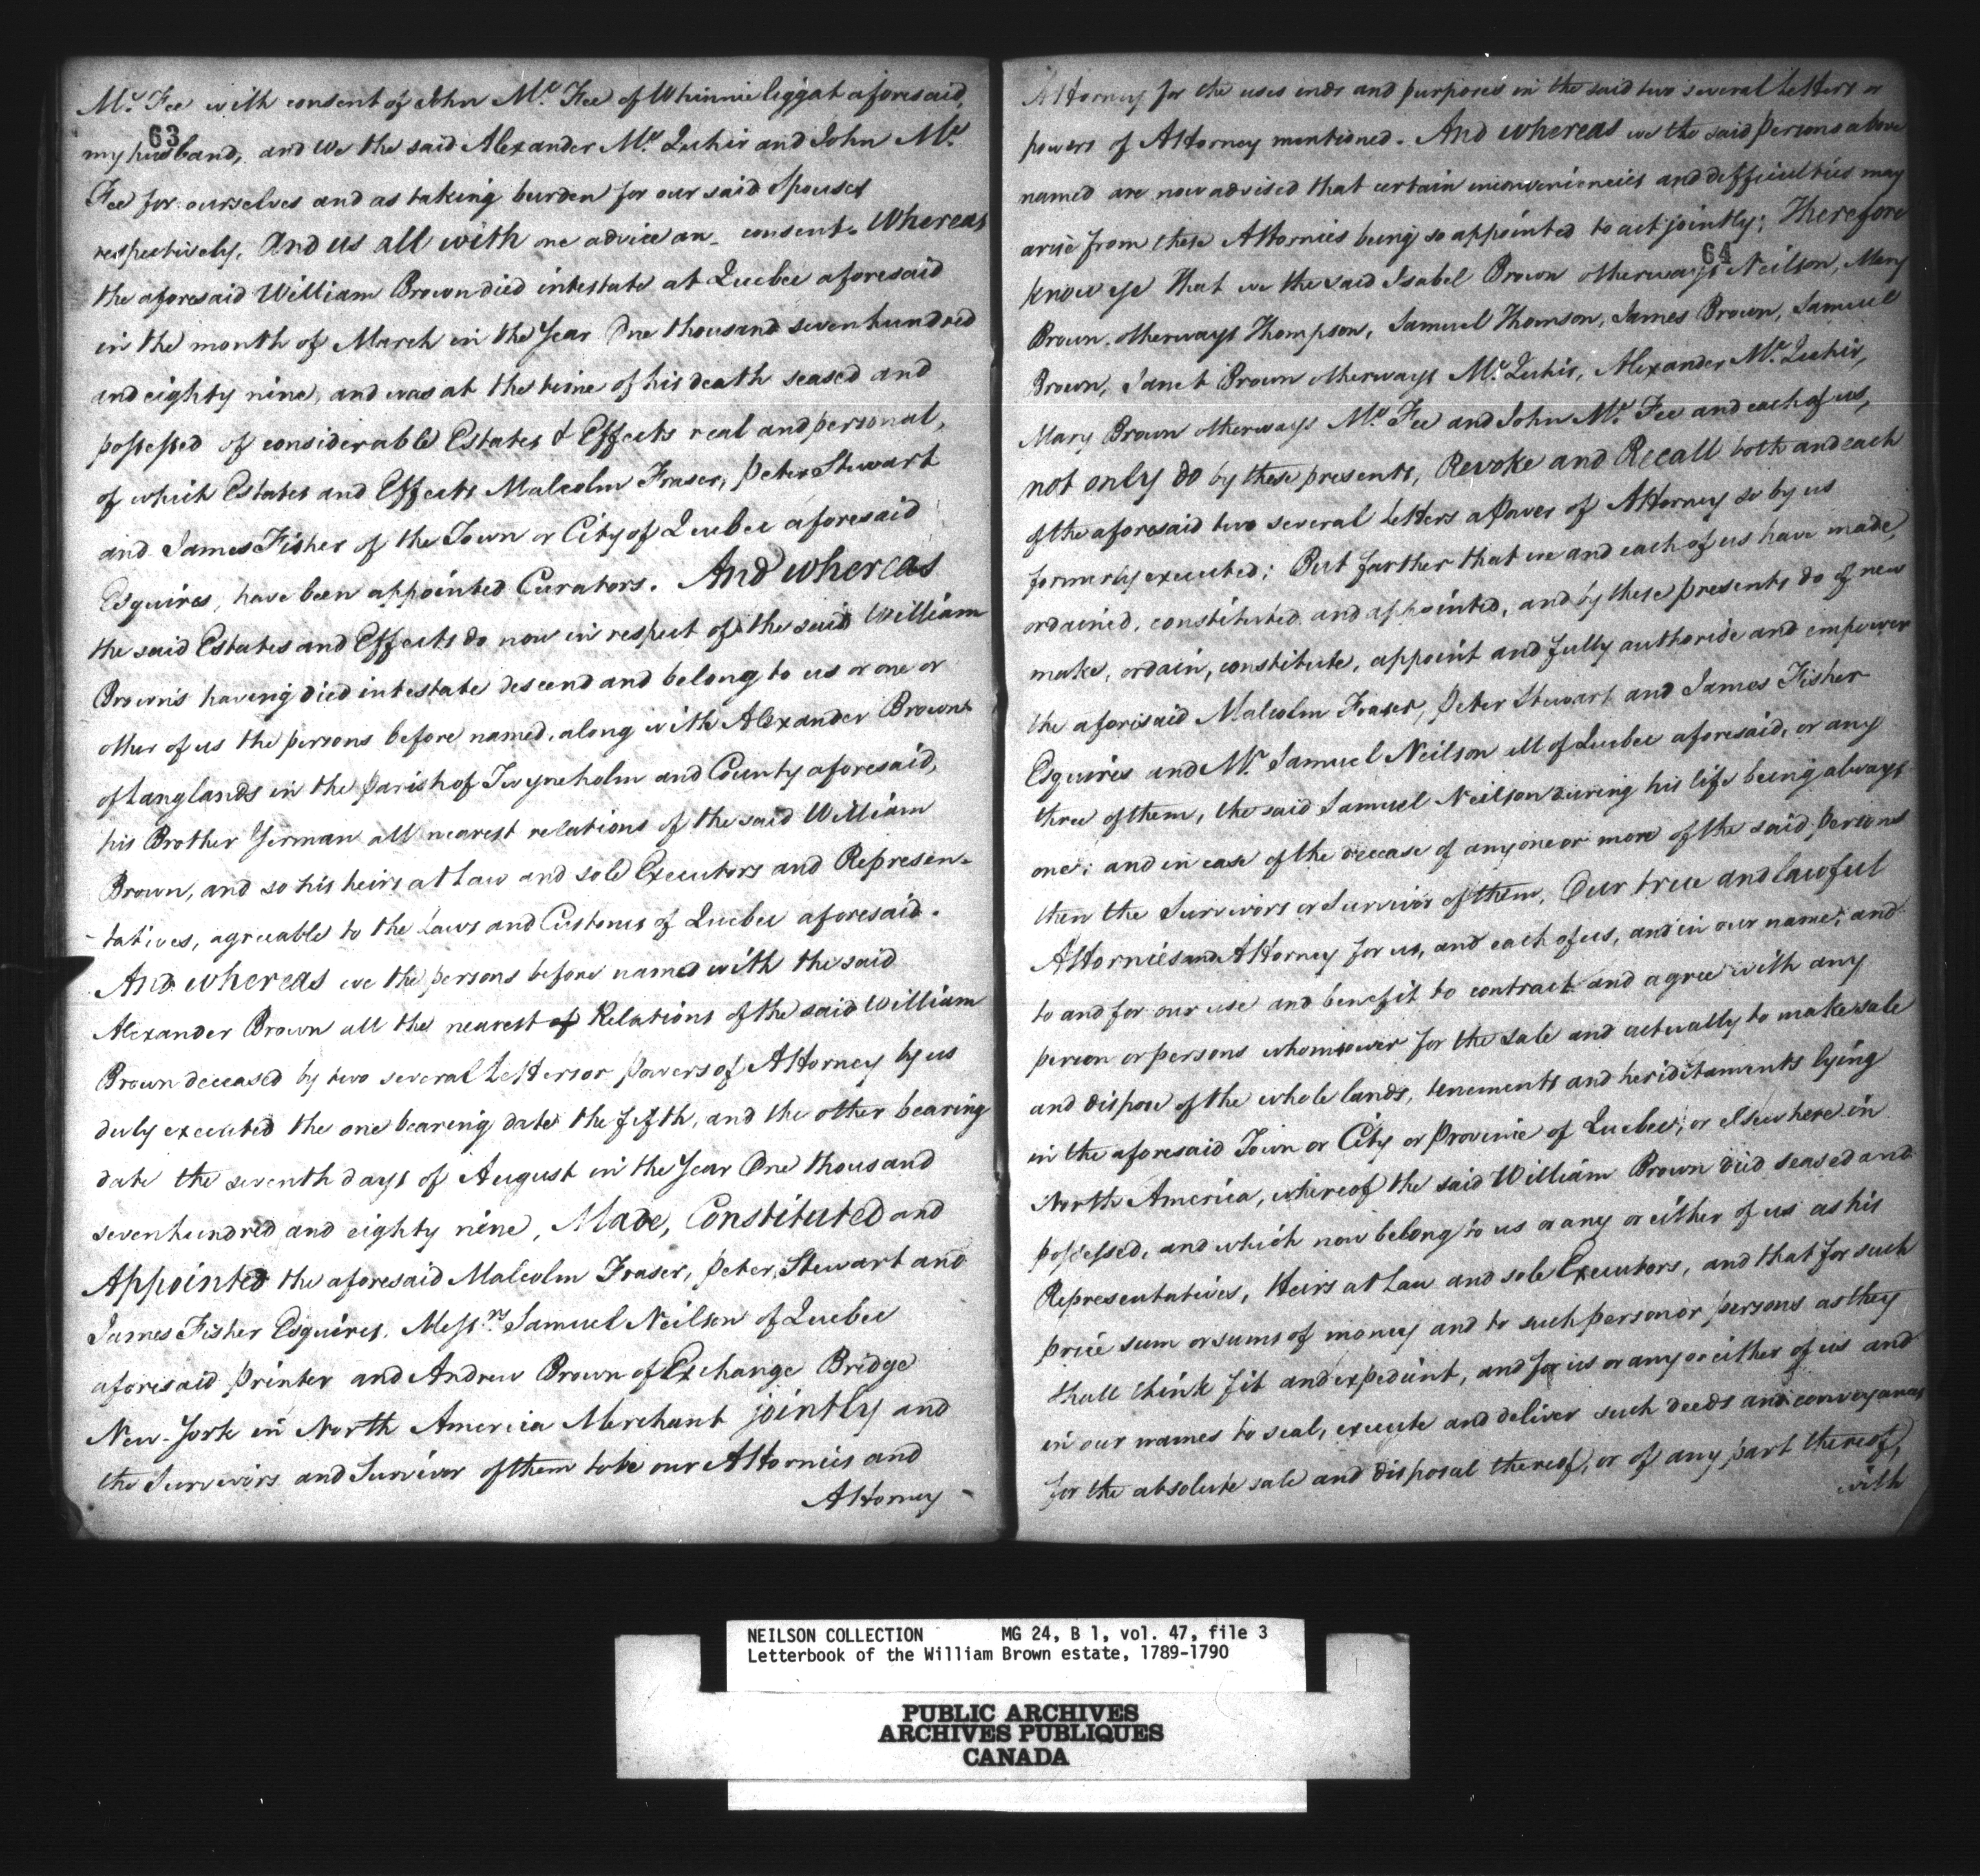 Mc. Fee with consent of John Mc. Fee of Whinnie liggat aforesaid,
63
my husband, and We the said Alexander Mc. Quhir and John Mc.
Fee for ourselves and as taking burden for our said Spouses
respectively. And us all with one advice an consent. Whereas
the aforesaid William Brown died intestate at Quebec aforesaid
in the month of March in the Year One thousand seven hundred
and eighty nine, and was at the time of his death seased and
possessed of considerable Estates & Effects real and personal,
of which Estates and Effects Malcolm Fraser, Peter Stewart
and James Fisher of the Town or City of Quebec aforesaid
Esquires, have been appointed Curators. And whereas
the said Estates and Effects do now in respect of the said William
Brown's having died intestate descend and belong to us or one or
other of us the persons before named, along with Alexander Brown
of Langlands in the Parish of Twyneholm and County aforesaid,
his Brother German all nearest relations of the said William
Brown, and so his heirs at Law and sole Executors and Represen-
-tatives, agreeable to the Laws and Customs of Quebec aforesaid.
And whereas we the persons before named with the said
Alexander Brown all the nearest of Relations of the said William
Brown deceased by two several Letters or Powers of Attorney by us
duly executed the one bearing date the fifth, and the other bearing
date the seventh days of August in the Year One thousand
seven hundred and eighty nine, Made, Constituted and
Appointed the aforesaid Malcolm Fraser, Peter Stewart and
James Fisher Esquires, Messrs. Samuel Neilson of Quebec
aforesaid Printer and Andrew Brown of Exchange Bridge
New-York in North America Merchant jointly and
the Survivors and Survivor of them to be our Attornies and
Attorney
Attorney for the uses ends and purposes in the said two several Letters or
powers of Attorney mentioned. And whereas we the said Persons above
named are now advised that certain inconveniencies and difficulties may
arise from these Attornies being so appointed to act jointly; Therefore
64
Know ye That we the said Isabel Brown otherways Neilson, Mary
Brown otherways Thompson, Samuel Thomson, James Brown, Samuel
Brown, Janet Brown otherways Mc. Quhir, Alexander Mc. Quhir,
Mary Brown otherways Mc. Fee and John Mc. Fee and each of us,
not only do by these presents, Revoke and Recall both and each
of the aforesaid two several Letters a Power of Attorney so by us
formerly executed; But farther that we and each of us have made,
ordained, constituted, and appointed, and by these presents do of new
make, ordain, constitute, appoint and fully authorise and empower
the aforisaid Malcolm Fraser, Peter Stewart and James Fisher
Esquires and Mr. Samuel Neilson all of Quebec aforesaid, or any
three of them, the said Samuel Neilson during his life being always
one; and in case of the decease of any one or more of the said persons
then the Survivors or Survivor of them, Our true and lawful
Attornies and Attorney for us, and each of us, and in our name, and
to and for our use and benefit to contract and agree with any
person or persons whomsoever for the sale and actually to make sale
and dispose of the whole lands, tenements and heriditaments lying
in the aforesaid Town or City or Province of Quebec, or elsewhere in
North America, whereof the said William Brown died seased and
possessed, and which now belong to us or any or either of us as his
Representatives, Heirs at Law and sole Executors, and that for such
price sum or sums of money and to such person or persons as they
shall think fit and expedient, and for us or any or either of us and
in our names to seal, execute and deliver such deeds and conveyances
for the absolute sale and disposal thereof, or of any part thereof,
with
NEILSON COLLECTION MG 24, B 1, vol. 47, file 3
Letterbook of the William Brown estate, 1789-1790
PUBLIC ARCHIVES
ARCHIVES PUBLIQUES
CANADA